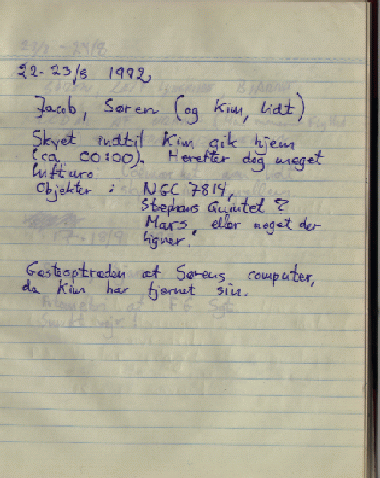 22-23/8 1992,
Jacob, Søren (og Kim, lidt)
Skyet indtil Kim gik hjem
(ca. 00:00). Herefter dog meget
lufturo.
Objekter : NGC 7814,
Stephans Quintet ?
Mars, eller noget der
ligner.
Gæsteoptræden af Sørens computer,
da Kim har fjernet sin.